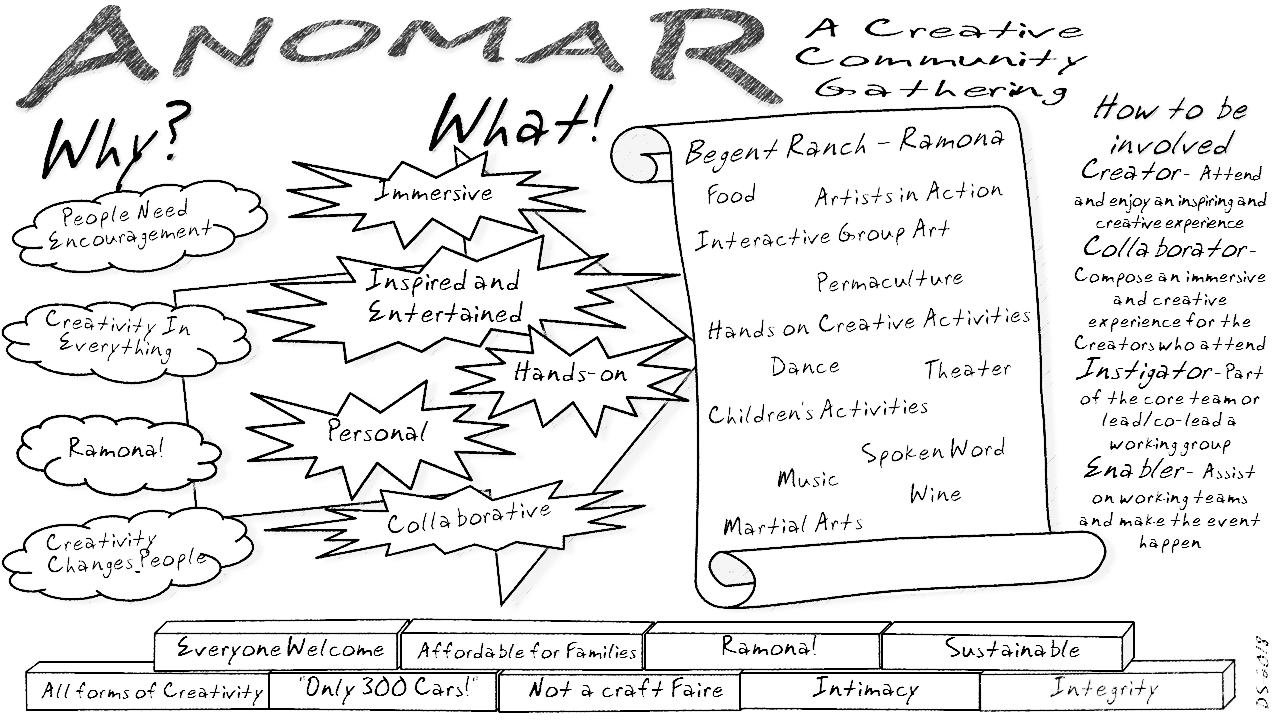 ANOMAR
A Creative
Community
Gathering
Why?
People Need
Encouragement
Creativity In
Everything
Ramona!
Creativity
Changes People
What!
Immersive
Inspired and
Entertained
Hands-on
Personal
Collaborative
Begent Ranch - Ramona
Food
Artists in Action
Interactive Group Art
Permaculture
Hands on Creative Activities
Dance
Theater
Children's Activities
Spoken Word
Music
Wine
Martial Arts
How to be
involved
Creator- Attend
and enjoy an inspiring and
creative experience
Collaborator-
Compose an immersive
and creative
experience for the
Creators who attend
Instigator- Part
of the core team or
lead/co-lead a
working group
Enabler- Assist
on working teams
and make the event
happen
Everyone Welcome
Affordable for Families
Ramona!
Sustainable
All forms of Creativity
"Only 300 Cars!"
Not a craft Faire
Intimacy
Integrity
DS 2018